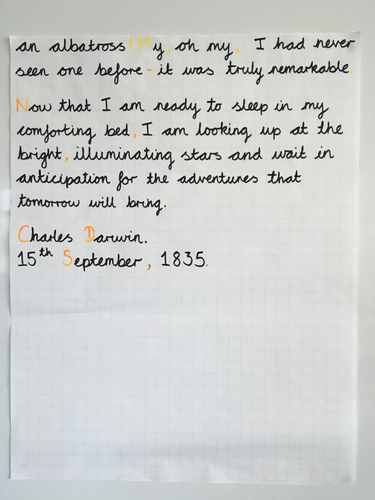 an albatross! My, oh my, I had never
seen one before - it was truly remarkable.
Now that I am ready to sleep in my
comforting bed, I am looking up at the
bright, illuminating stars and wait in
anticipation for the adventures that
tomorrow will bring.
Charles Darwin.
15th September, 1835.